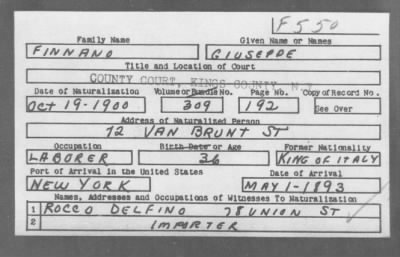 F550
Family Name Given Name or Names
FINNANO GIUSEPPE
Title and Location of Court
COUNTY COURT, KINGS COUNTY, N.Y.
Date of Naturalization Volume or Bundle No. Page No. Copy of Record No.
Oct 19-1900 309 192 See Over
Address of Naturalized Person
72 VAN BRUNT ST
Occupation Birth Date or Age Former Nationality
LABORER 36 KING OF ITALY
Port of Arrival in the United States Date of Arrival
NEW YORK MAY 1-1893
Names, Addresses and Occupations of Witnesses To Naturalization
1 ROCCO DELFINO 78 UNION ST
2 IMPORTER